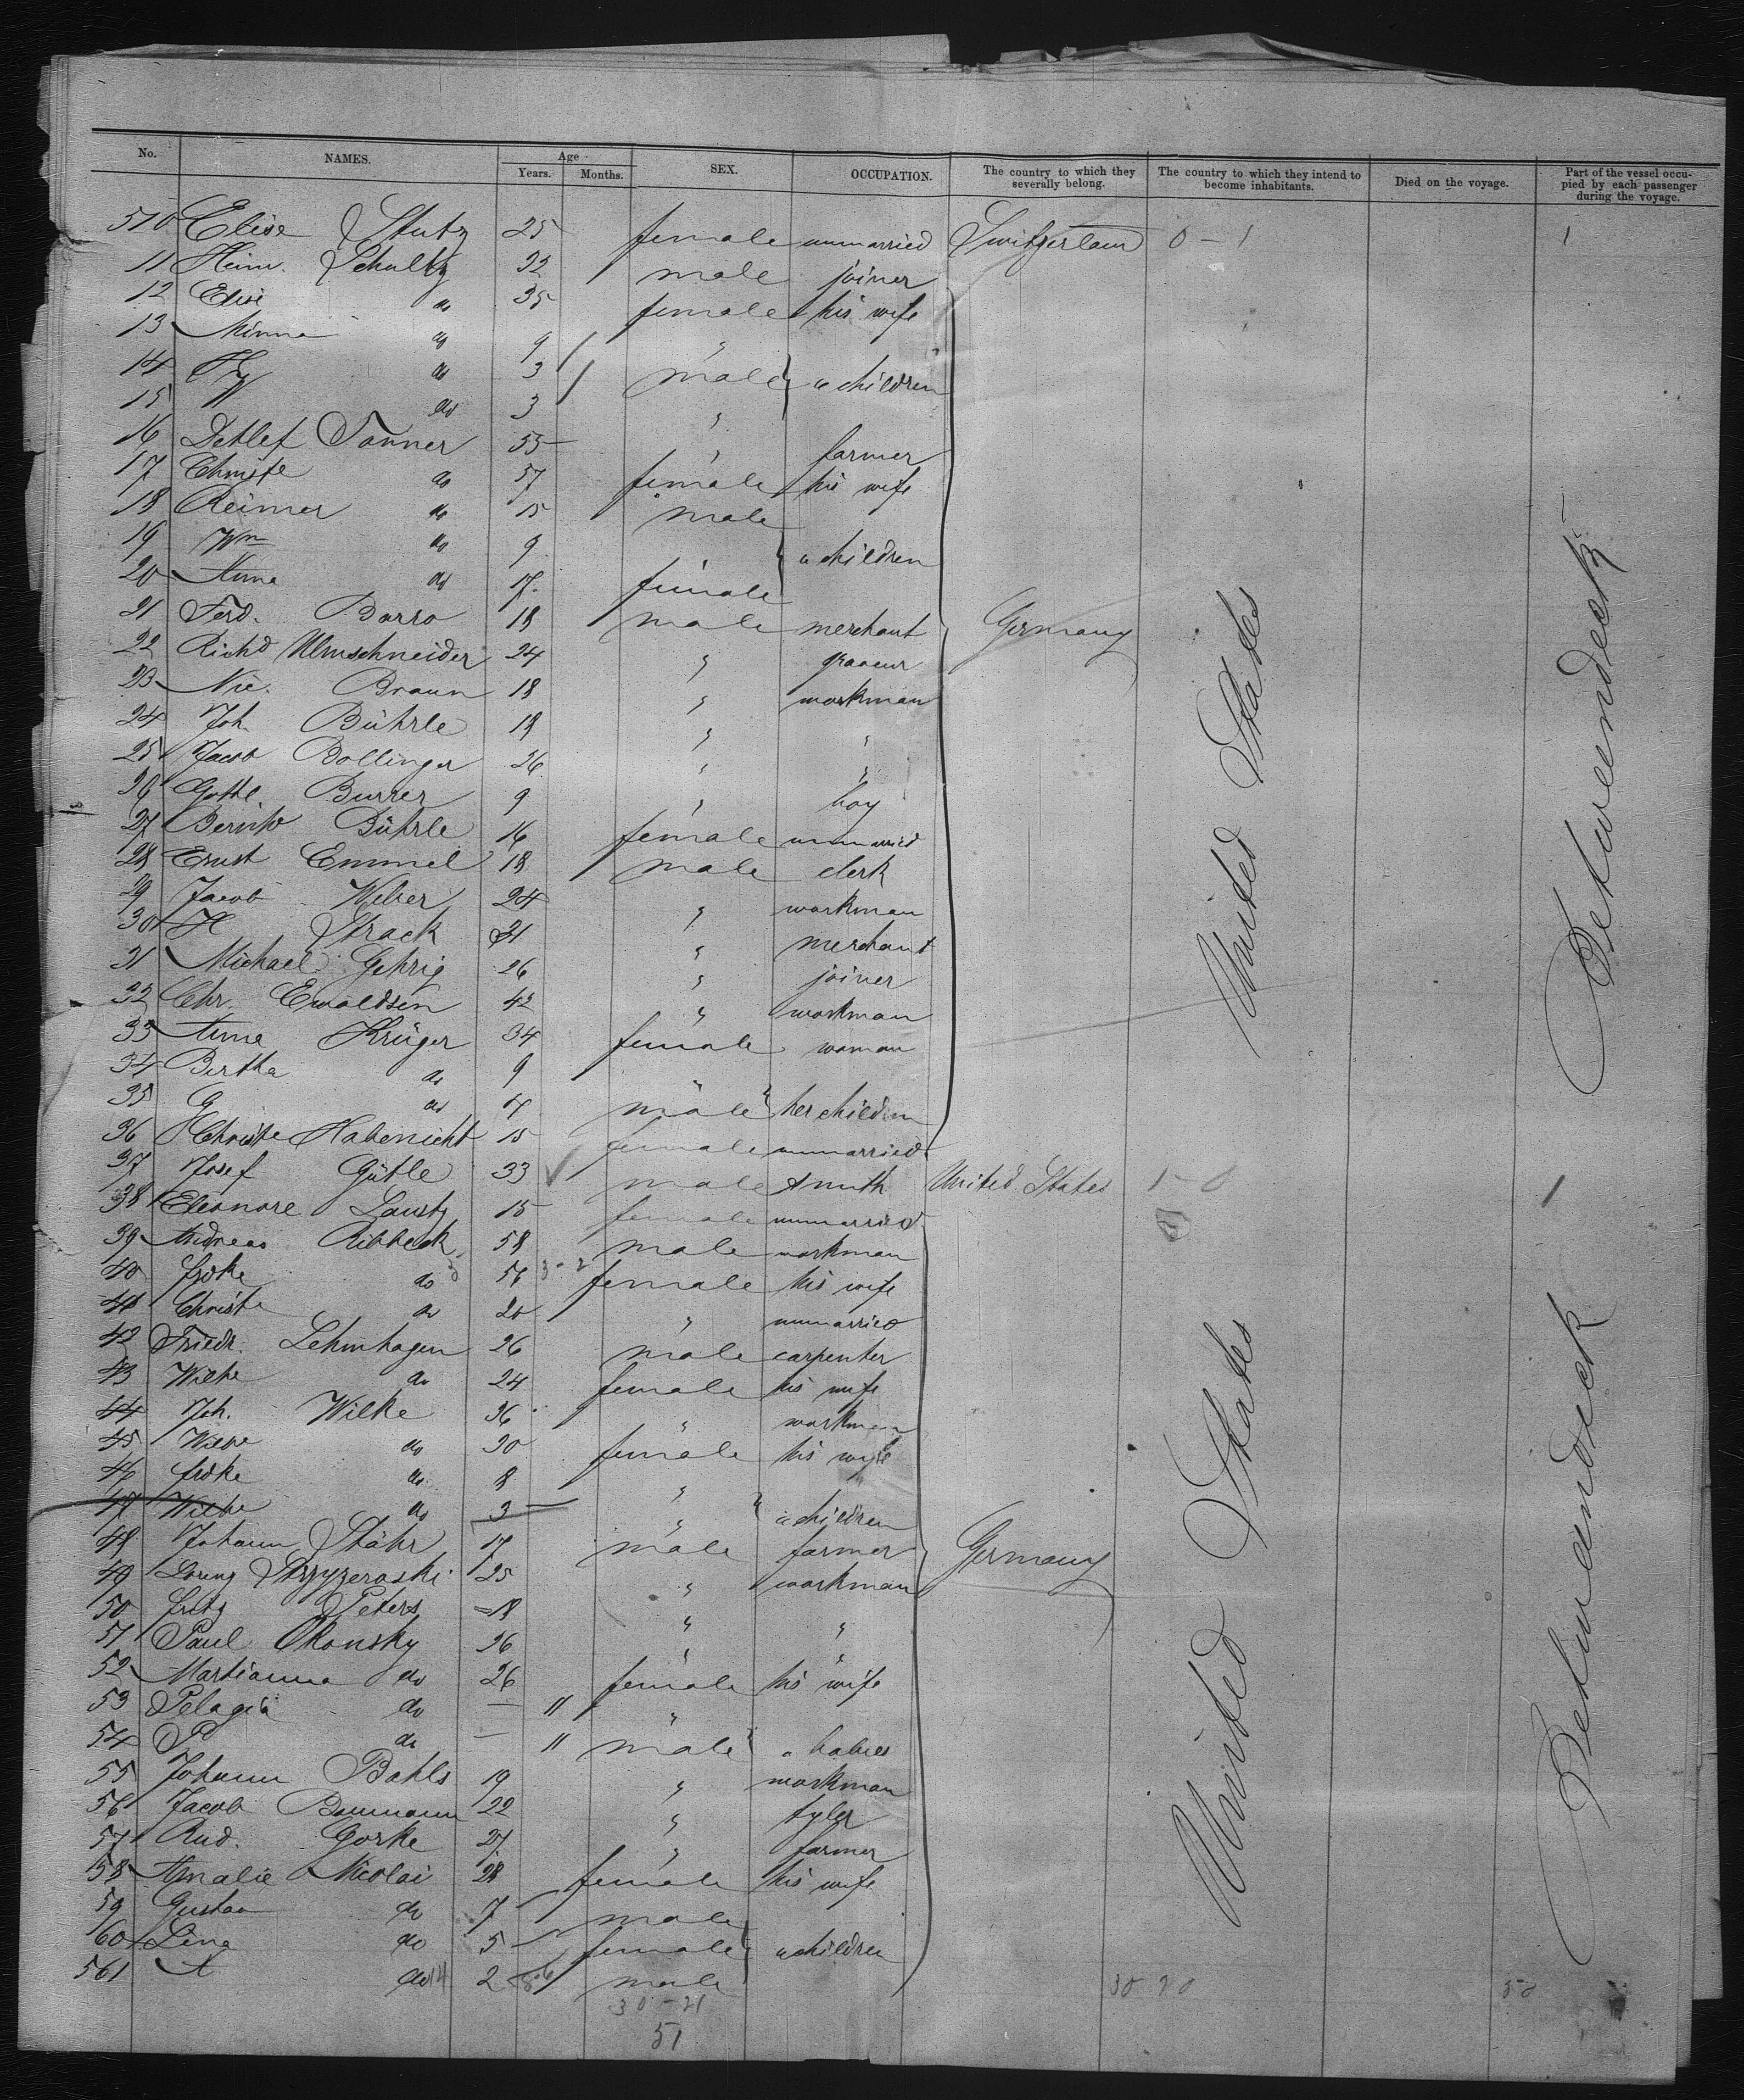 No. NAMES. Age Years. Months. SEX. OCCUPATION. The country to which they severally belong. The country to which they intend to become inhabitants. Died on the voyage. Part of the vessel occupied by each passenger during the voyage.
510 Elise Stutz 25 female unmarried Switzerland 0-1 1
11 Heinr. Schultz 32 male joiner
12 Elise do 35 female his wife
13 Minna do 9 "
14 Hy do 3 male " children
15 W do 3 "
16 Detlef Tonner 55 " farmer
17 Christe do 57 female his wife
18 Reimer do 15 male
19 Wm do 9 " " children
20 Anna do 17 female
21 Ferd. Borro 18 male merchant Germany
22 Richd Ulmschneider 24 " graveur
23 Nic. Braun 18 " workman
24 Joh. Bührle 18 " "
25 Jacob Bollinger 26 " "
26 Gottl. Burrer 9 " boy
27 Bernhd Bührle 16 female unmarried
28 Ernst Emmel 18 male clerk
29 Jacob Weber 24 " workman
30 H Strack 21 " merchant
31 Michael Gehrig 26 " joiner
32 Chr. Ewaldsen 42 " workman
33 Anna Krüger 34 female woman
34 Bertha do 9 "
35 G do 4 male her children
36 Christe Habenicht 15 female unmarried
37 Josef Gütle 33 male smith United States 1-0 1
38 Eleonore Lausty 15 female unmarried
39 Andreas Ribbeck 58 male workman
40 Frdke do 56 3-2 female his wife
41 Christe do 20 " unmarried
42 Friedr. Lehmhagen 26 male carpenter
43 Wilhe do 24 female his wife
44 Joh. Wilke 36 " workman
45 Wilhe do 30 female his wife
46 Frdke do 8 "
47 Wilhe do 3 " " children
48 Johann Stähr 17 male farmer Germany
49 Lorenz 25 " workman
50 Fritz Peters 18 " "
51 Paul Okonsky 26 " "
52 Martianna do 26 female his wife
53 Pelagia do — 11 "
54 P do — 11 male " babies
55 Johann Bahls 19 " workman
56 Jacob Baumann 22 " tyler
57 Rud. Gorke 27 " farmer
58 Amalie Nicolai 28 female his wife
59 Gustav do 7 male
60 Lina do 5 female " children
561 A do 2 male
30-21
51
30 20
50
United States
United States
Betweendeck
Betweendeck